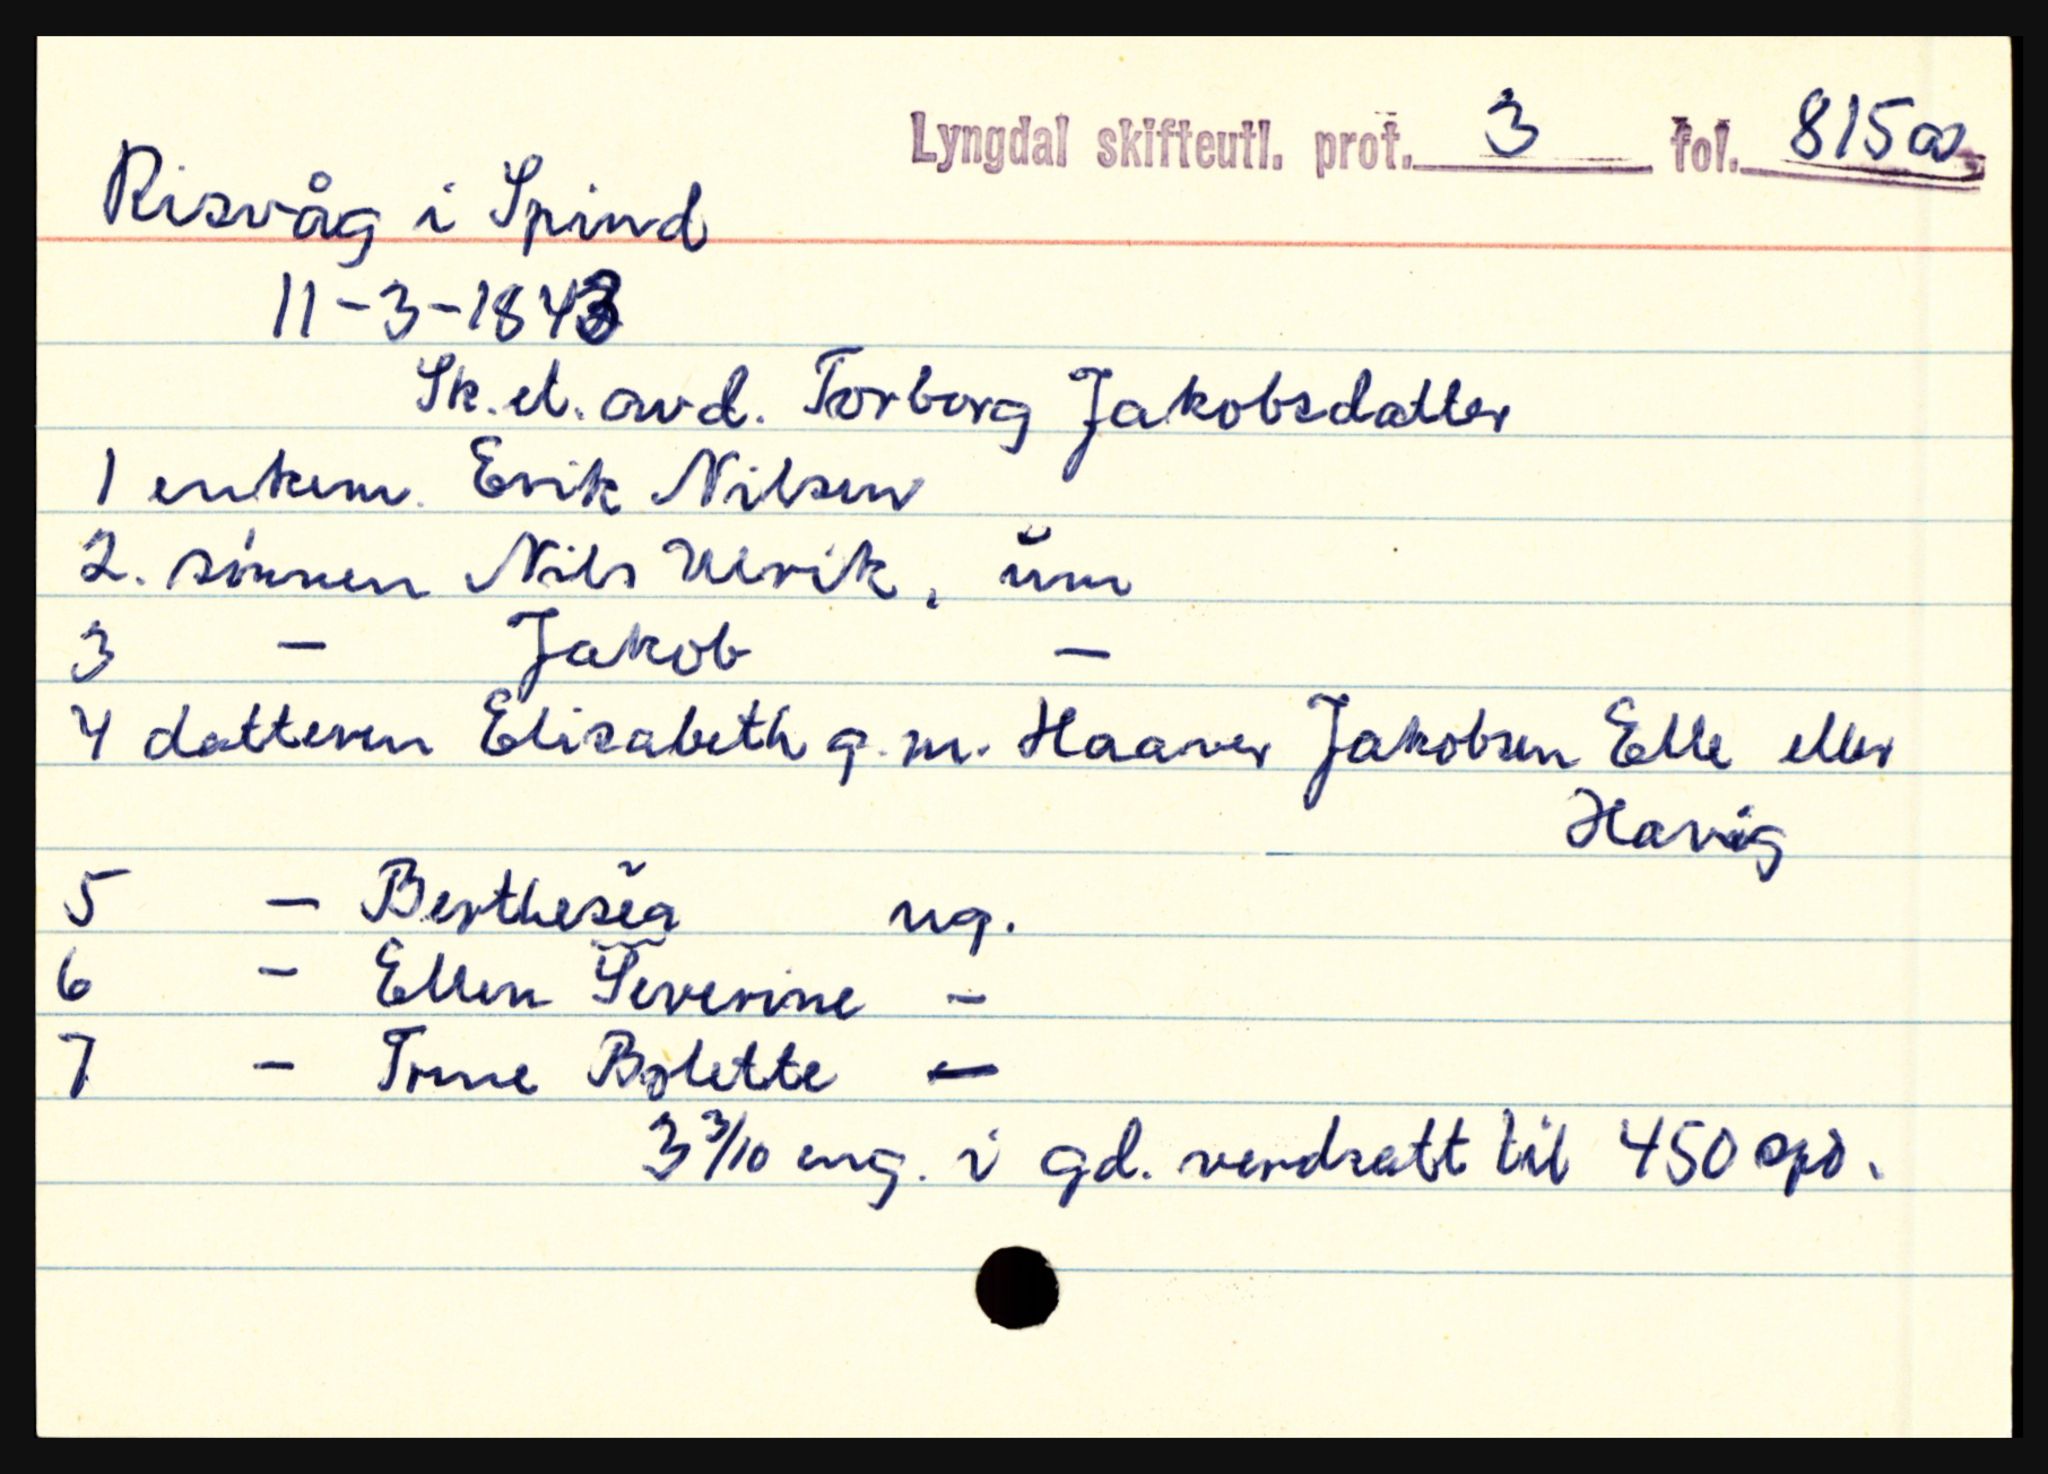 Lyngdal skifteutl. prot. 3 fol. 815a
Risvåg i Spind
11-3-1843
Sk. et. avd. Torborg Jakobsdatter
1 enkem. Erik Nilsen
2. sönnen Nils Ulrik, um
3 — Jakob —
4 datteren Elisabeth g.m. Haaver Jakobsen Elle eller
Havig
5 — Berthesea ug.
6 — Ellen Severine —
7 — Trine Bolette —
3 3/10 eng. i gd. verdsatt til 450 spd.